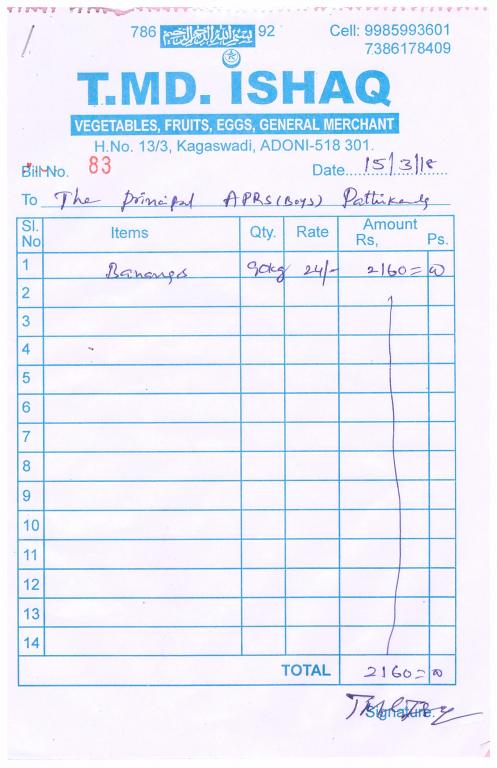 786 بسم الله الرحمن الرحيم 92
Cell: 9985993601
7386178409
T.MD. ISHAQ
VEGETABLES, FRUITS, EGGS, GENERAL MERCHANT
H.No. 13/3, Kagaswadi, ADONI-518 301.
Bill No. 83 Date 15/3/18
To The principal APRS (Boys) Pathikonda
Sl. No Items Qty. Rate Amount Rs, Ps.
1 Bananas 90kg 24/- 2160=00
2
3
4
5
6
7
8
9
10
11
12
13
14
TOTAL 2160=00
Signature.